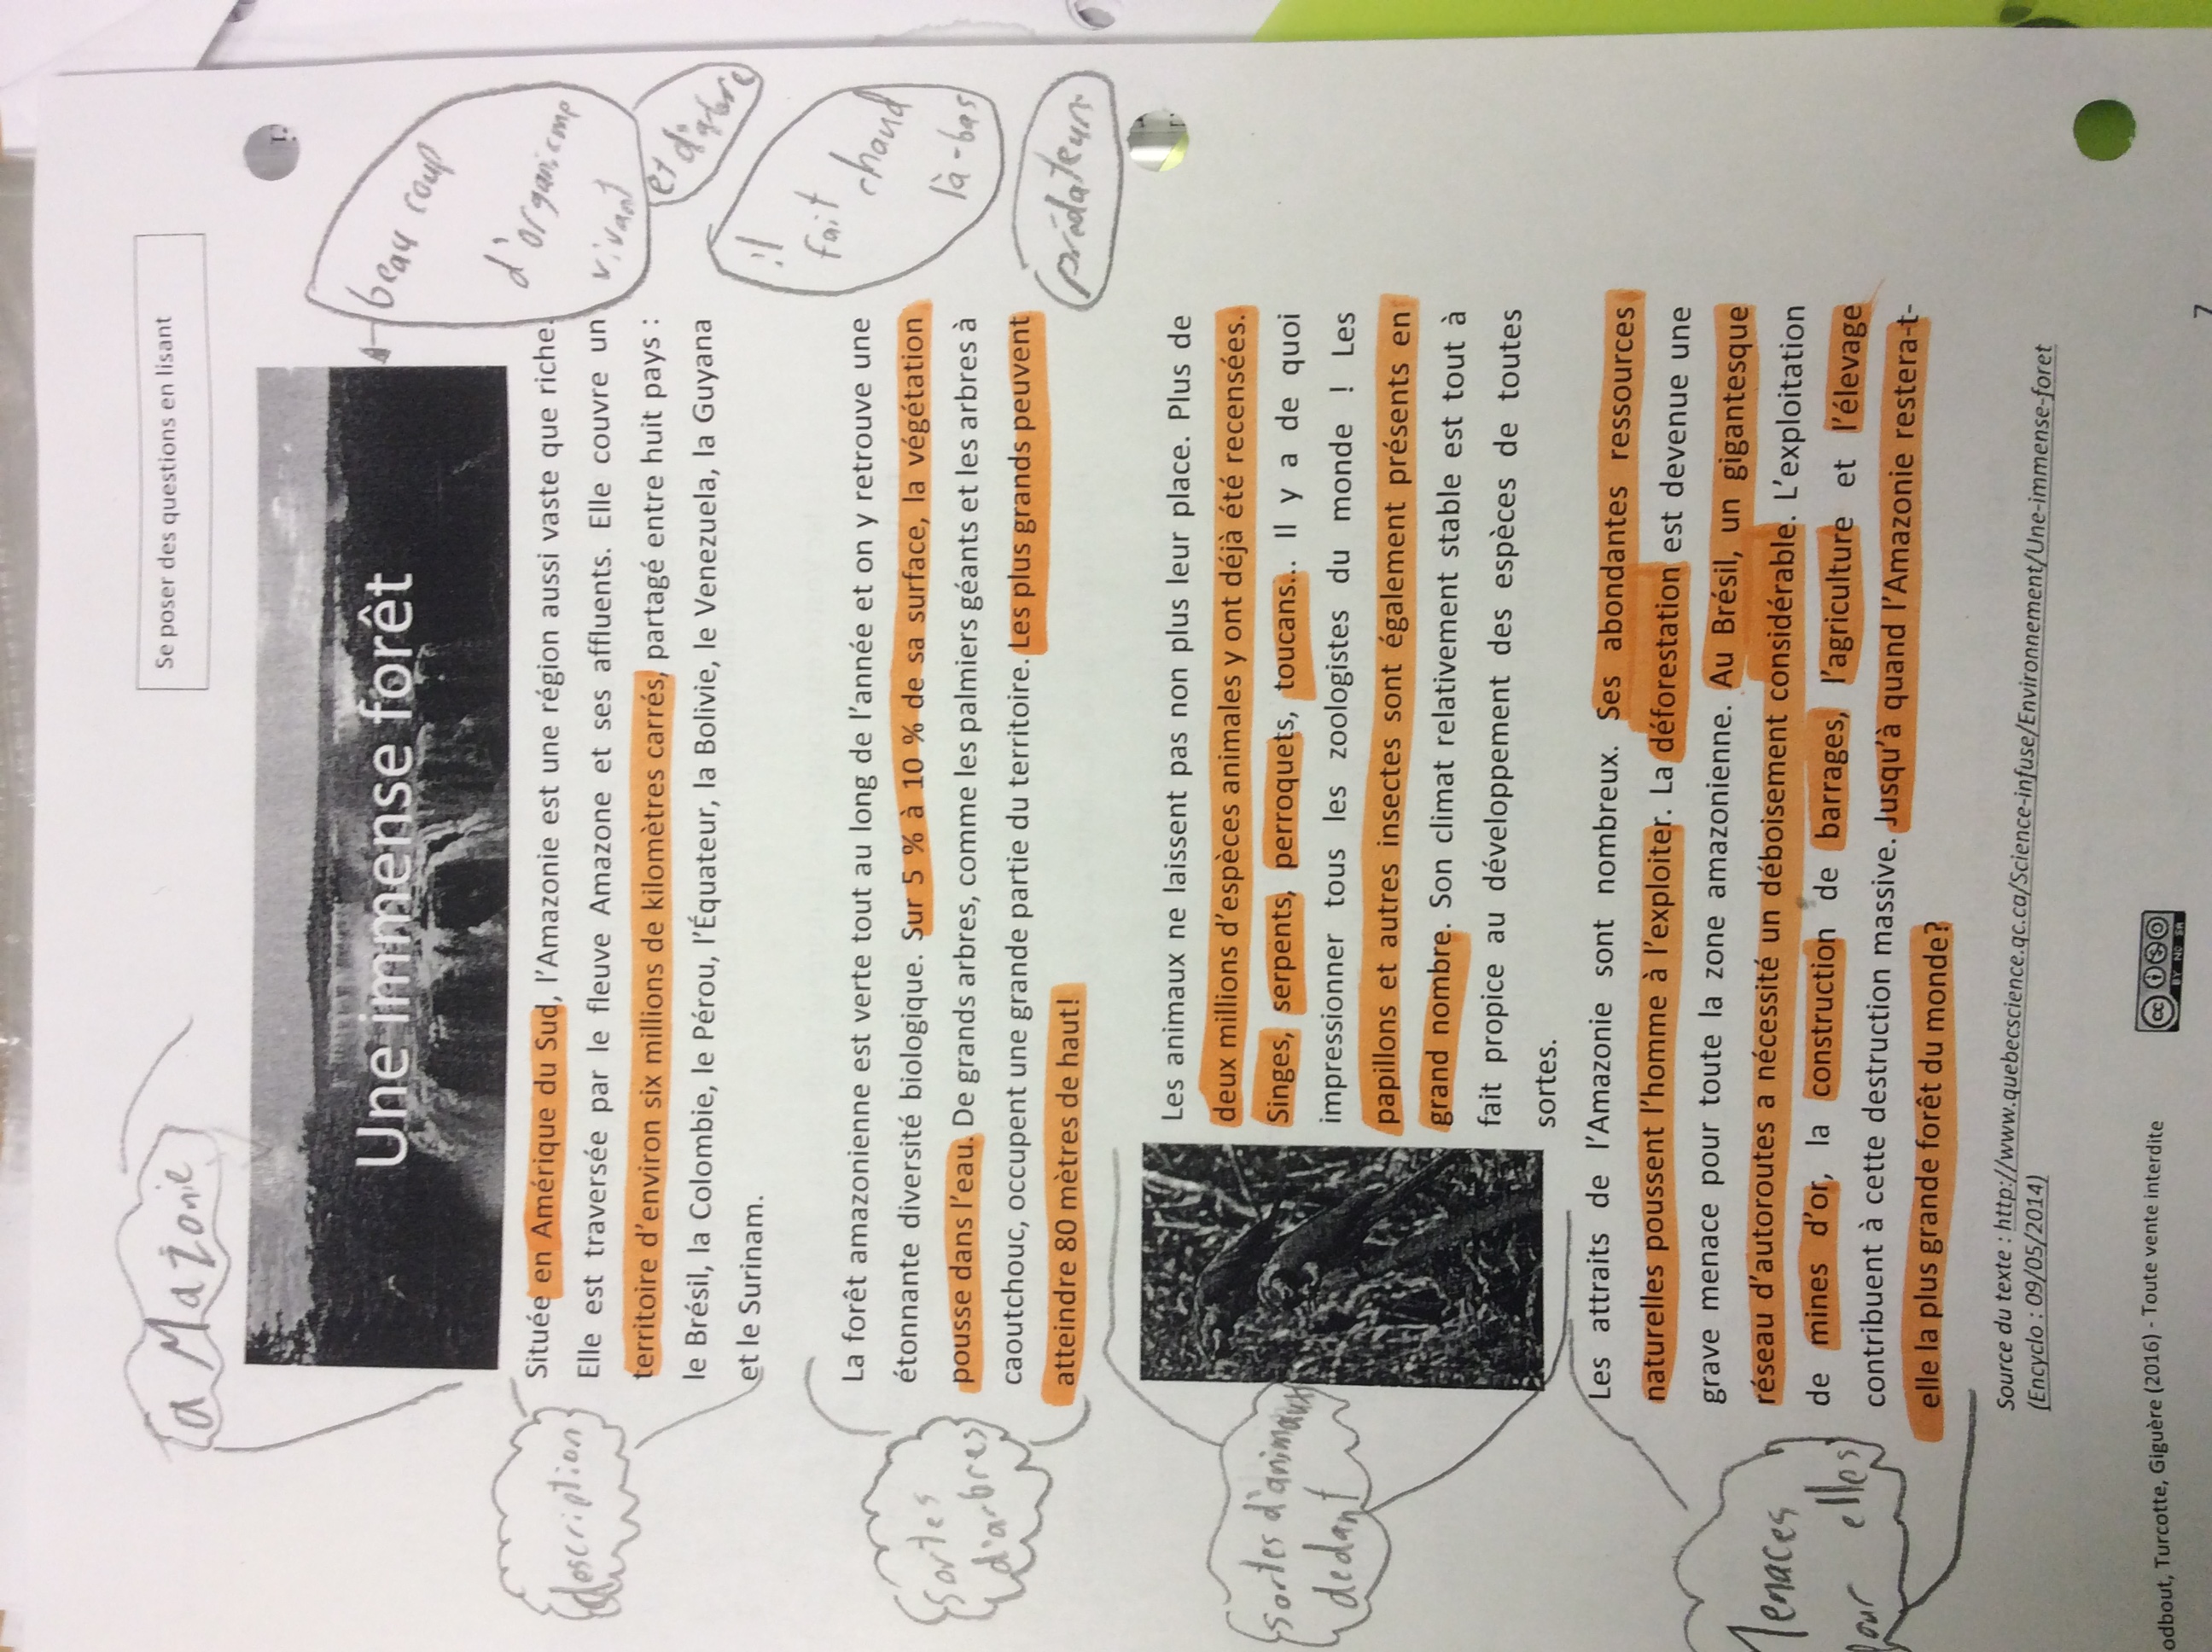 Se poser des questions en lisant
la Mazonie
Une immense forêt
beaucoup
d'organismp
vivant
et d'arbre
description
Située en Amérique du Sud, l'Amazonie est une région aussi vaste que riche.
Elle est traversée par le fleuve Amazone et ses affluents. Elle couvre un
territoire d'environ six millions de kilomètres carrés, partagé entre huit pays :
le Brésil, la Colombie, le Pérou, l'Équateur, la Bolivie, le Venezuela, la Guyana
et le Surinam.
il
fait chaud
là-bas
sortes
d'arbres
La forêt amazonienne est verte tout au long de l'année et on y retrouve une
étonnante diversité biologique. Sur 5 % à 10 % de sa surface, la végétation
pousse dans l'eau. De grands arbres, comme les palmiers géants et les arbres à
caoutchouc, occupent une grande partie du territoire. Les plus grands peuvent
atteindre 80 mètres de haut!
prédateurs
sortes d'animaux
dedant
Les animaux ne laissent pas non plus leur place. Plus de
deux millions d'espèces animales y ont déjà été recensées.
Singes, serpents, perroquets, toucans... Il y a de quoi
impressionner tous les zoologistes du monde ! Les
papillons et autres insectes sont également présents en
grand nombre. Son climat relativement stable est tout à
fait propice au développement des espèces de toutes
sortes.
Menaces
pour elles
Les attraits de l'Amazonie sont nombreux. Ses abondantes ressources
naturelles poussent l'homme à l'exploiter. La déforestation est devenue une
grave menace pour toute la zone amazonienne. Au Brésil, un gigantesque
réseau d'autoroutes a nécessité un déboisement considérable. L'exploitation
de mines d'or, la construction de barrages, l'agriculture et l'élevage
contribuent à cette destruction massive. Jusqu'à quand l'Amazonie restera-t-
elle la plus grande forêt du monde?
Source du texte : http://www.quebecscience.qc.ca/Science-infuse/Environnement/Une-immense-foret
(Encyclo : 09/05/2014)
odbout, Turcotte, Giguère (2016) - Toute vente interdite
cc BY NC SA
7